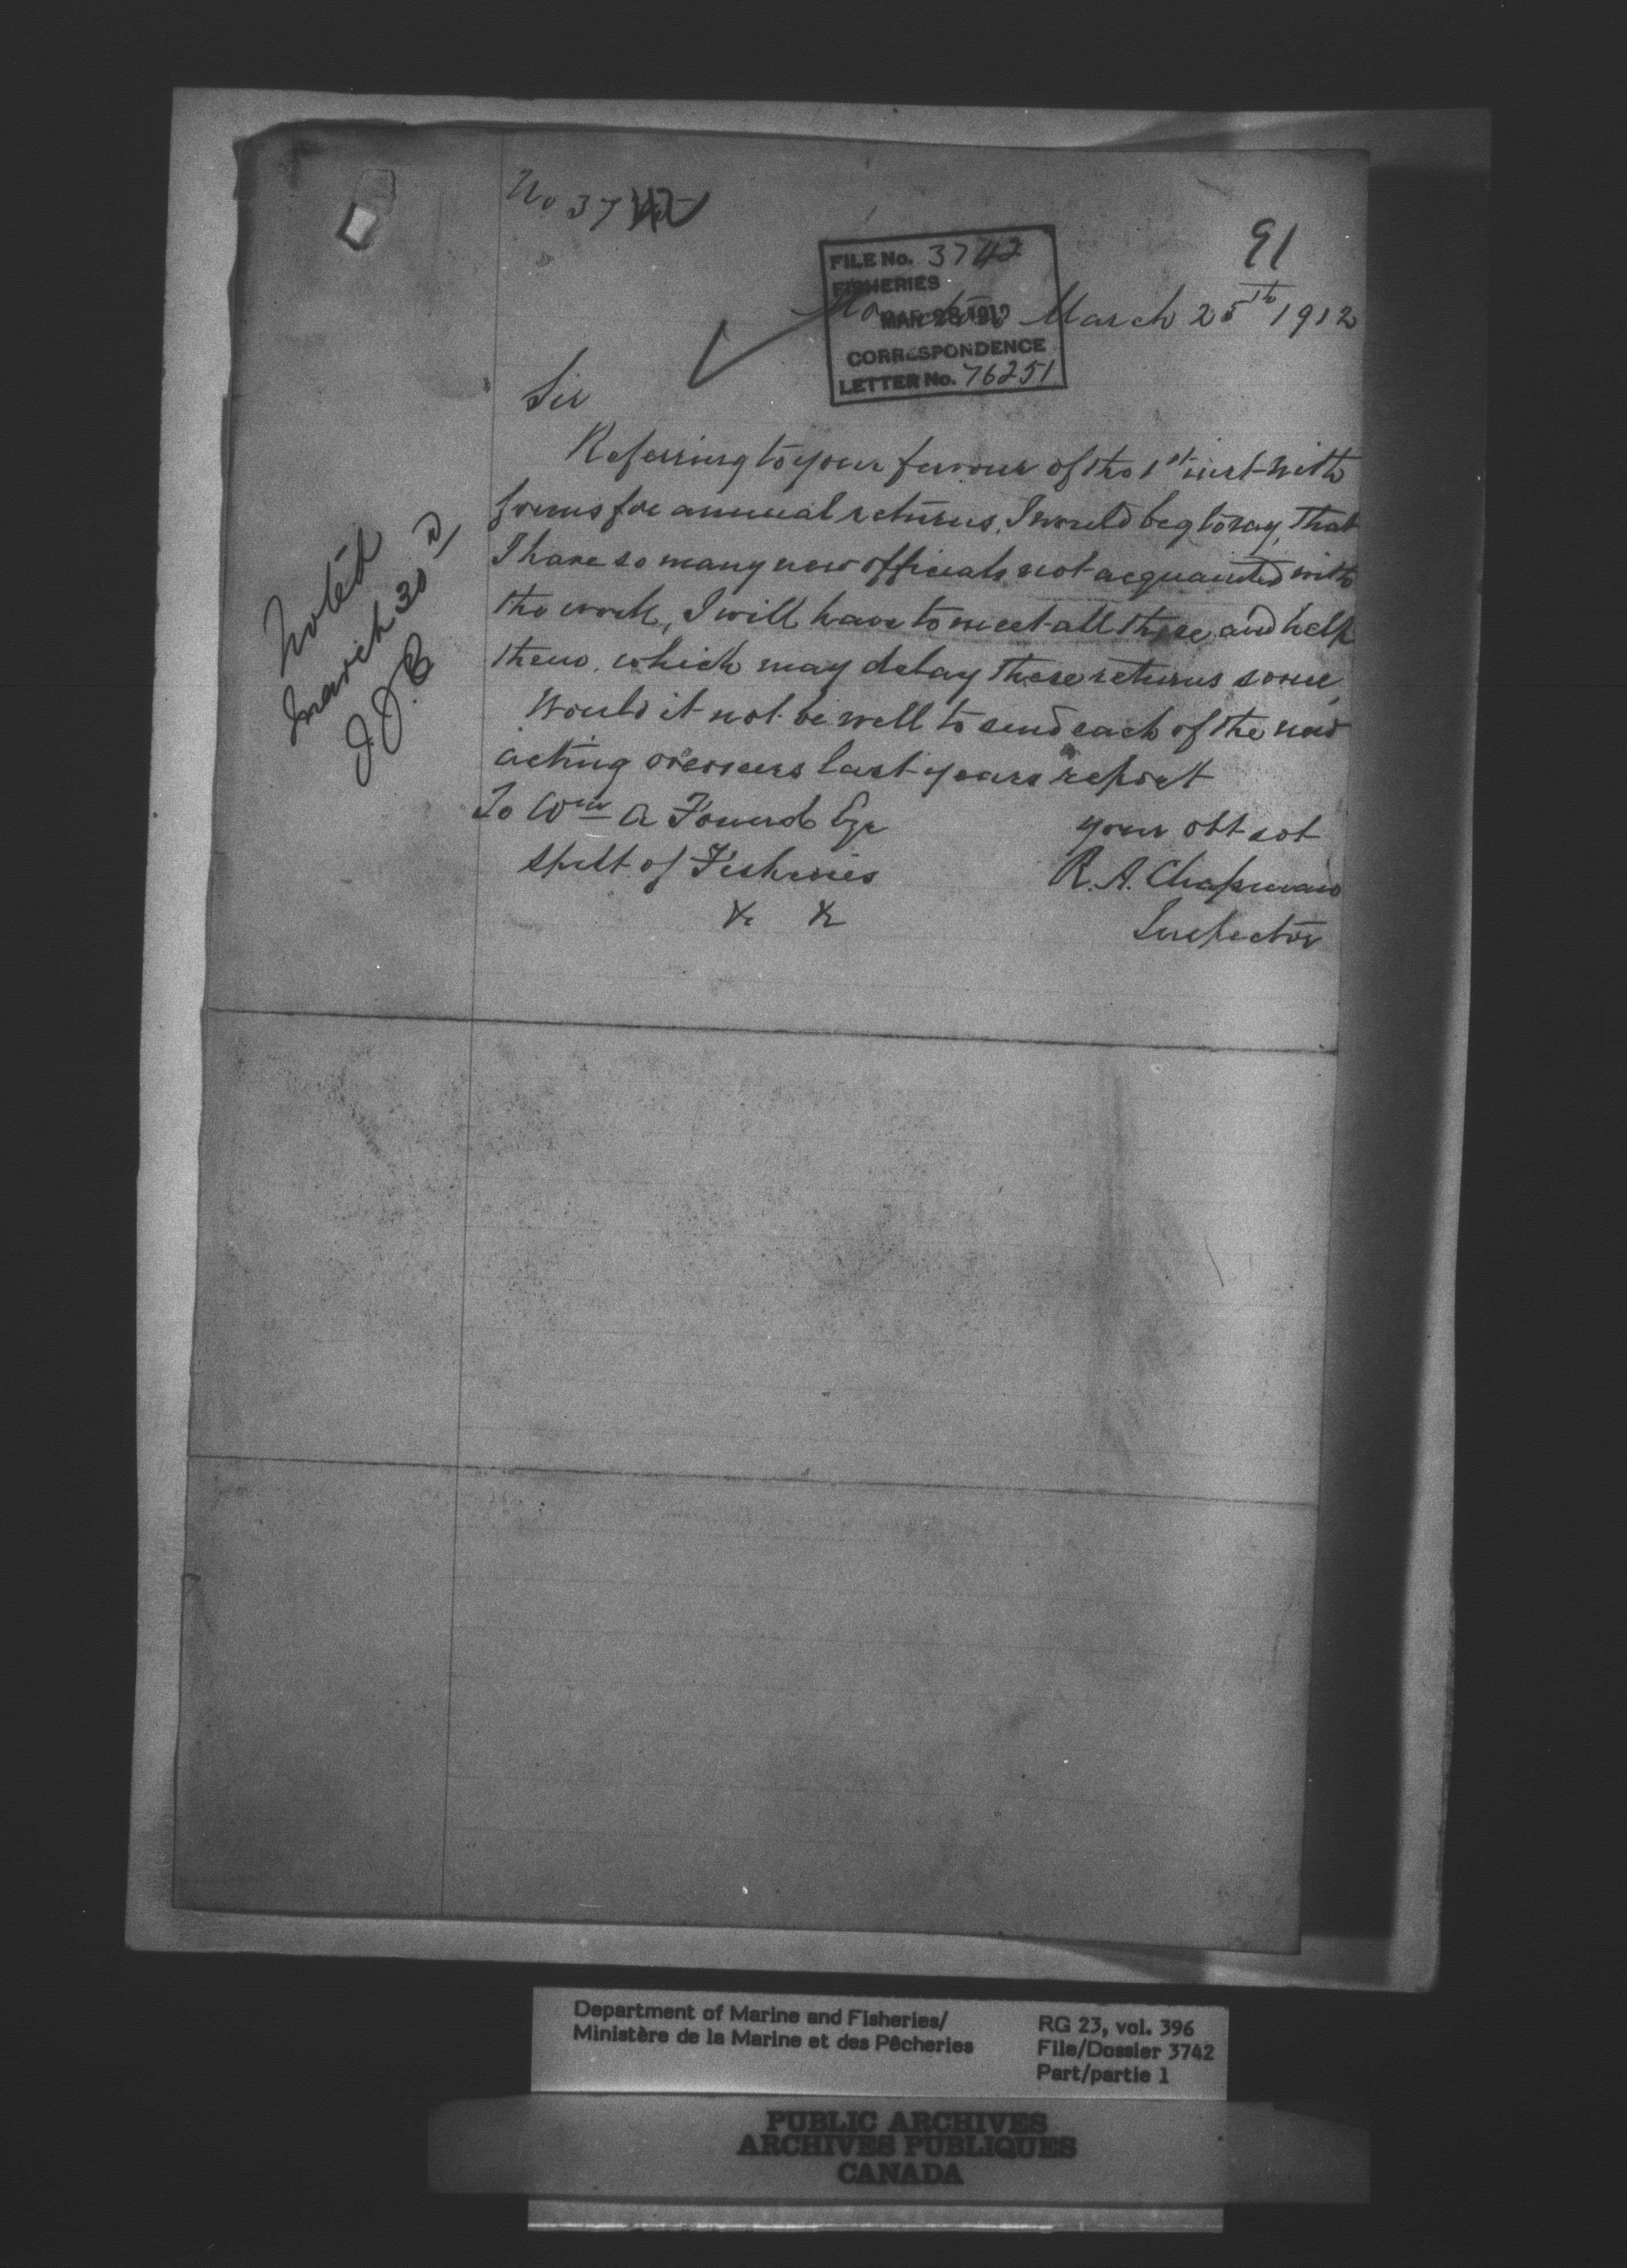 No 3742
91
FILE No. 3742
FISHERIES
MAR 28 1912
CORRESPONDENCE
LETTER No. 76251
Moncton March 25th 1912
Sir
Referring to your favour of the 1st inst with
forms for annual returns, I would beg to say, that
I have so many new officials not acquanted with
the work, I will have to meet all these and help
them, which may delay these returns some,
Would it not be well to send each of the new
acting overseers last years report
To Wm A Found Esqr
your obt sst
Supt of Fisheries
R. A. Chapman
&c &c
Inspector
Noted
March 30
J.J.B
Department of Marine and Fisheries/
Ministère de la Marine et des Pêcheries
RG 23, vol. 396
File/Dossier 3742
Part/partie 1
PUBLIC ARCHIVES
ARCHIVES PUBLIQUES
CANADA